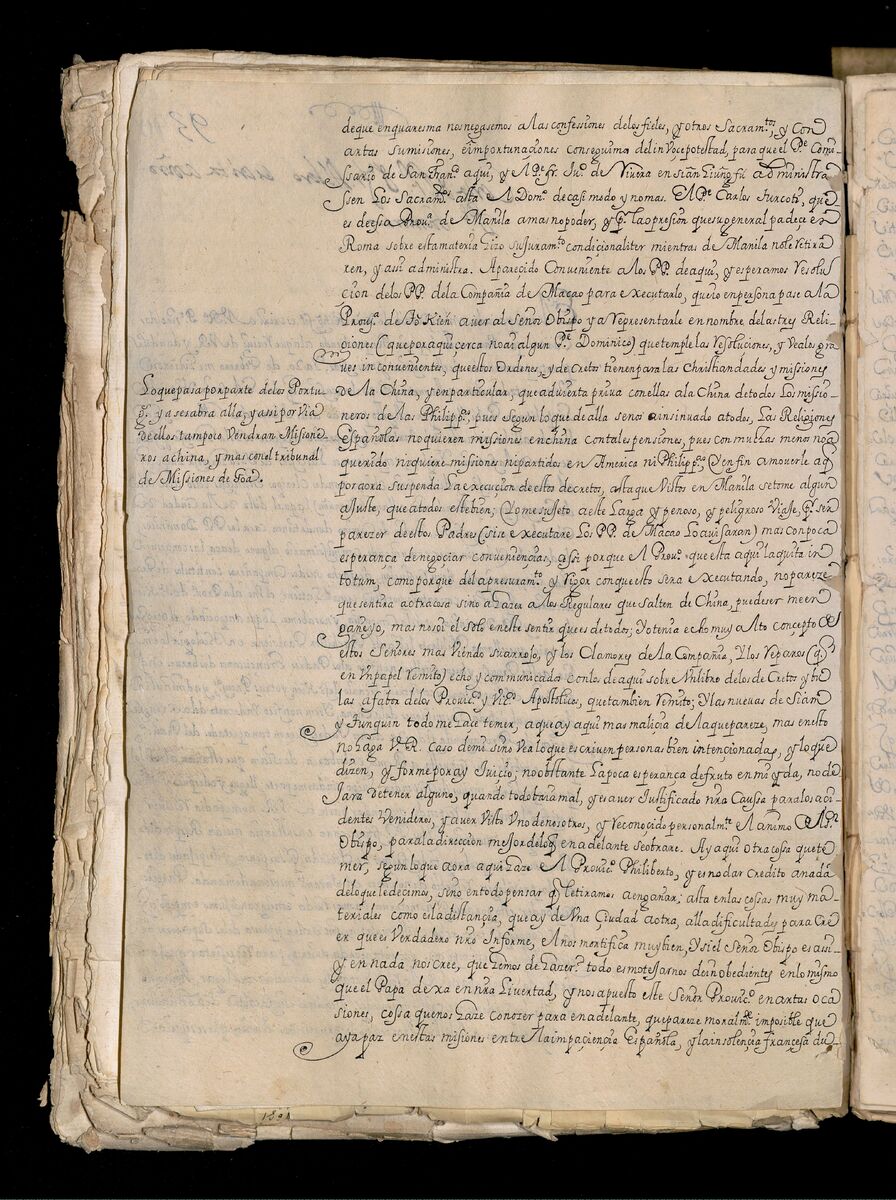 de que en quaresma nos negasemos a las confessiones de los fieles, y otros Sacram.tos, y con
artas sumisiones, e importunaçiones conseguimos del in voçe potestad, para que el P.e Comi-
ssario de San Fran.co aqui, y el P.e fr. Ju.o de administra
ssen Los Sacram.tos asta el Dom.o de casi modo y no mas. El P.e Carlos Turcoti, que
es de essa Prou.a de Manila a mas no poder, y p.r la opresion que su general padeçe en
Roma sobre esta materia hizo su juram.to condicionaliter mientras de Manila no le retira
ren, y assi administra. A pareçido Conueniente a los PP. de aqui, y esperamos resolu
cion de los PP. de la Compañia de Macao para executarlo, que io en persona pase a la
Prou.a de fo Kien a uer al Señor Obispo y a representarle en nombre de las tres Reli-
giones (que por aqui çerca no ai algun P.e Dominico) que temple las resoluciones, y vea los gra
ues inconuenientes, que estos Ordenes, y decretos tienen para las Christiandades y missiones
de la China, y en particular, que aduierta priua con ellas a la China de todos Los missio-
neros de las Philipp.s, pues segun lo que de alla se nos a insinuado a todos, Las Religiones
Españolas no quieren missiones en china con tales pensiones, pues con muchas menos no a
querido ni quiere missiones ni partidos en America ni Philipp.s (y en fin a mouerle a q
por aora suspenda La execuçion de estos decretos, asta que vistos en Manila se tome algun
ajuste, que a todos este bien; Yo me sujeto a este Largo y penoso, y peligroso Viaje, p.r ser
parezer de estos Padres (si se executare Los PP. de Macao Lo auisaran) mas con poca
esperança de negoçiar conueniençias, assi porque el Prou.o que esta aqui la quita in
totum, como porque del apresuram.to y rigor con que esto sera executando, no pareze
que sentira a otra cosa sino a hazer a los Regulares que salten de China, puede ser me en
gañe yo, mas no soi el solo en este sentir que es de todos; Yo tenia echo muy alto conçepto de
estos Señores mas viendo su arrojo, y los Clamores de la Compañia, Y los reparos (q
en Vn papel remito) echo y communicada con los de aqui sobre Vn libro de los decretos y bu
las a fabor de los Prouic.s y Vic.s Apostolicos, que tambien remito; Y las nueuas de Sian
y Tunquin todo me haçe temer, a que ay aqui mas maliçia de la que pareze, mas en esto
no haga V. R. caso de mi sino vea lo que escriuen personas bien intençionadas, y lo que
dizen, y forme por ay Juiçio; no obstante la poca esperança de fruto en mi yda, no de
jara detener alguno, quando todo baia mal, y es auer Justificado nra Caussa para los aci-
dentes Venideros, y auer visto Vno de nosotros, y reconocido personalm.te el animo del S.r
Obispo, para la direccion mejor de lo q en adelante se obrare. Ay aqui otra cossa que te
mer, segun lo que aora aqui haze el Prouic.o Philiberto, y es no dar credito a nada
de lo que le deçimos, sino en todo pensar q le tiramos a engañar; asta en las cossas muy ma-
teriales como es la distançia, que ay de Vna Çiudad a otra, alla dificultades para cre
er que es Verdadero nro Informe, el nos mortifica muy bien, Y si el Señor Obispo es assi
y en nada nos cree, que hemos de hazer. todo es motejarnos de inobedientes en lo mismo
que el Papa dexa en nra Liuertad, y nos a puesto este Señor Prouic.o en artas oca
siones, cossa que nos haze conozer para en adelante, que pareze moralm.te imposible que
aya paz en estas misiones entre la impaçiençia Española, y la insolençia françesa du
Lo que pasa por parte de los Portu
g.s ya se sabra alla, y assi por via
de ellos tampoco Vendran Misione
ros a china, y mas con el tribunal
de Missiones de Goa.